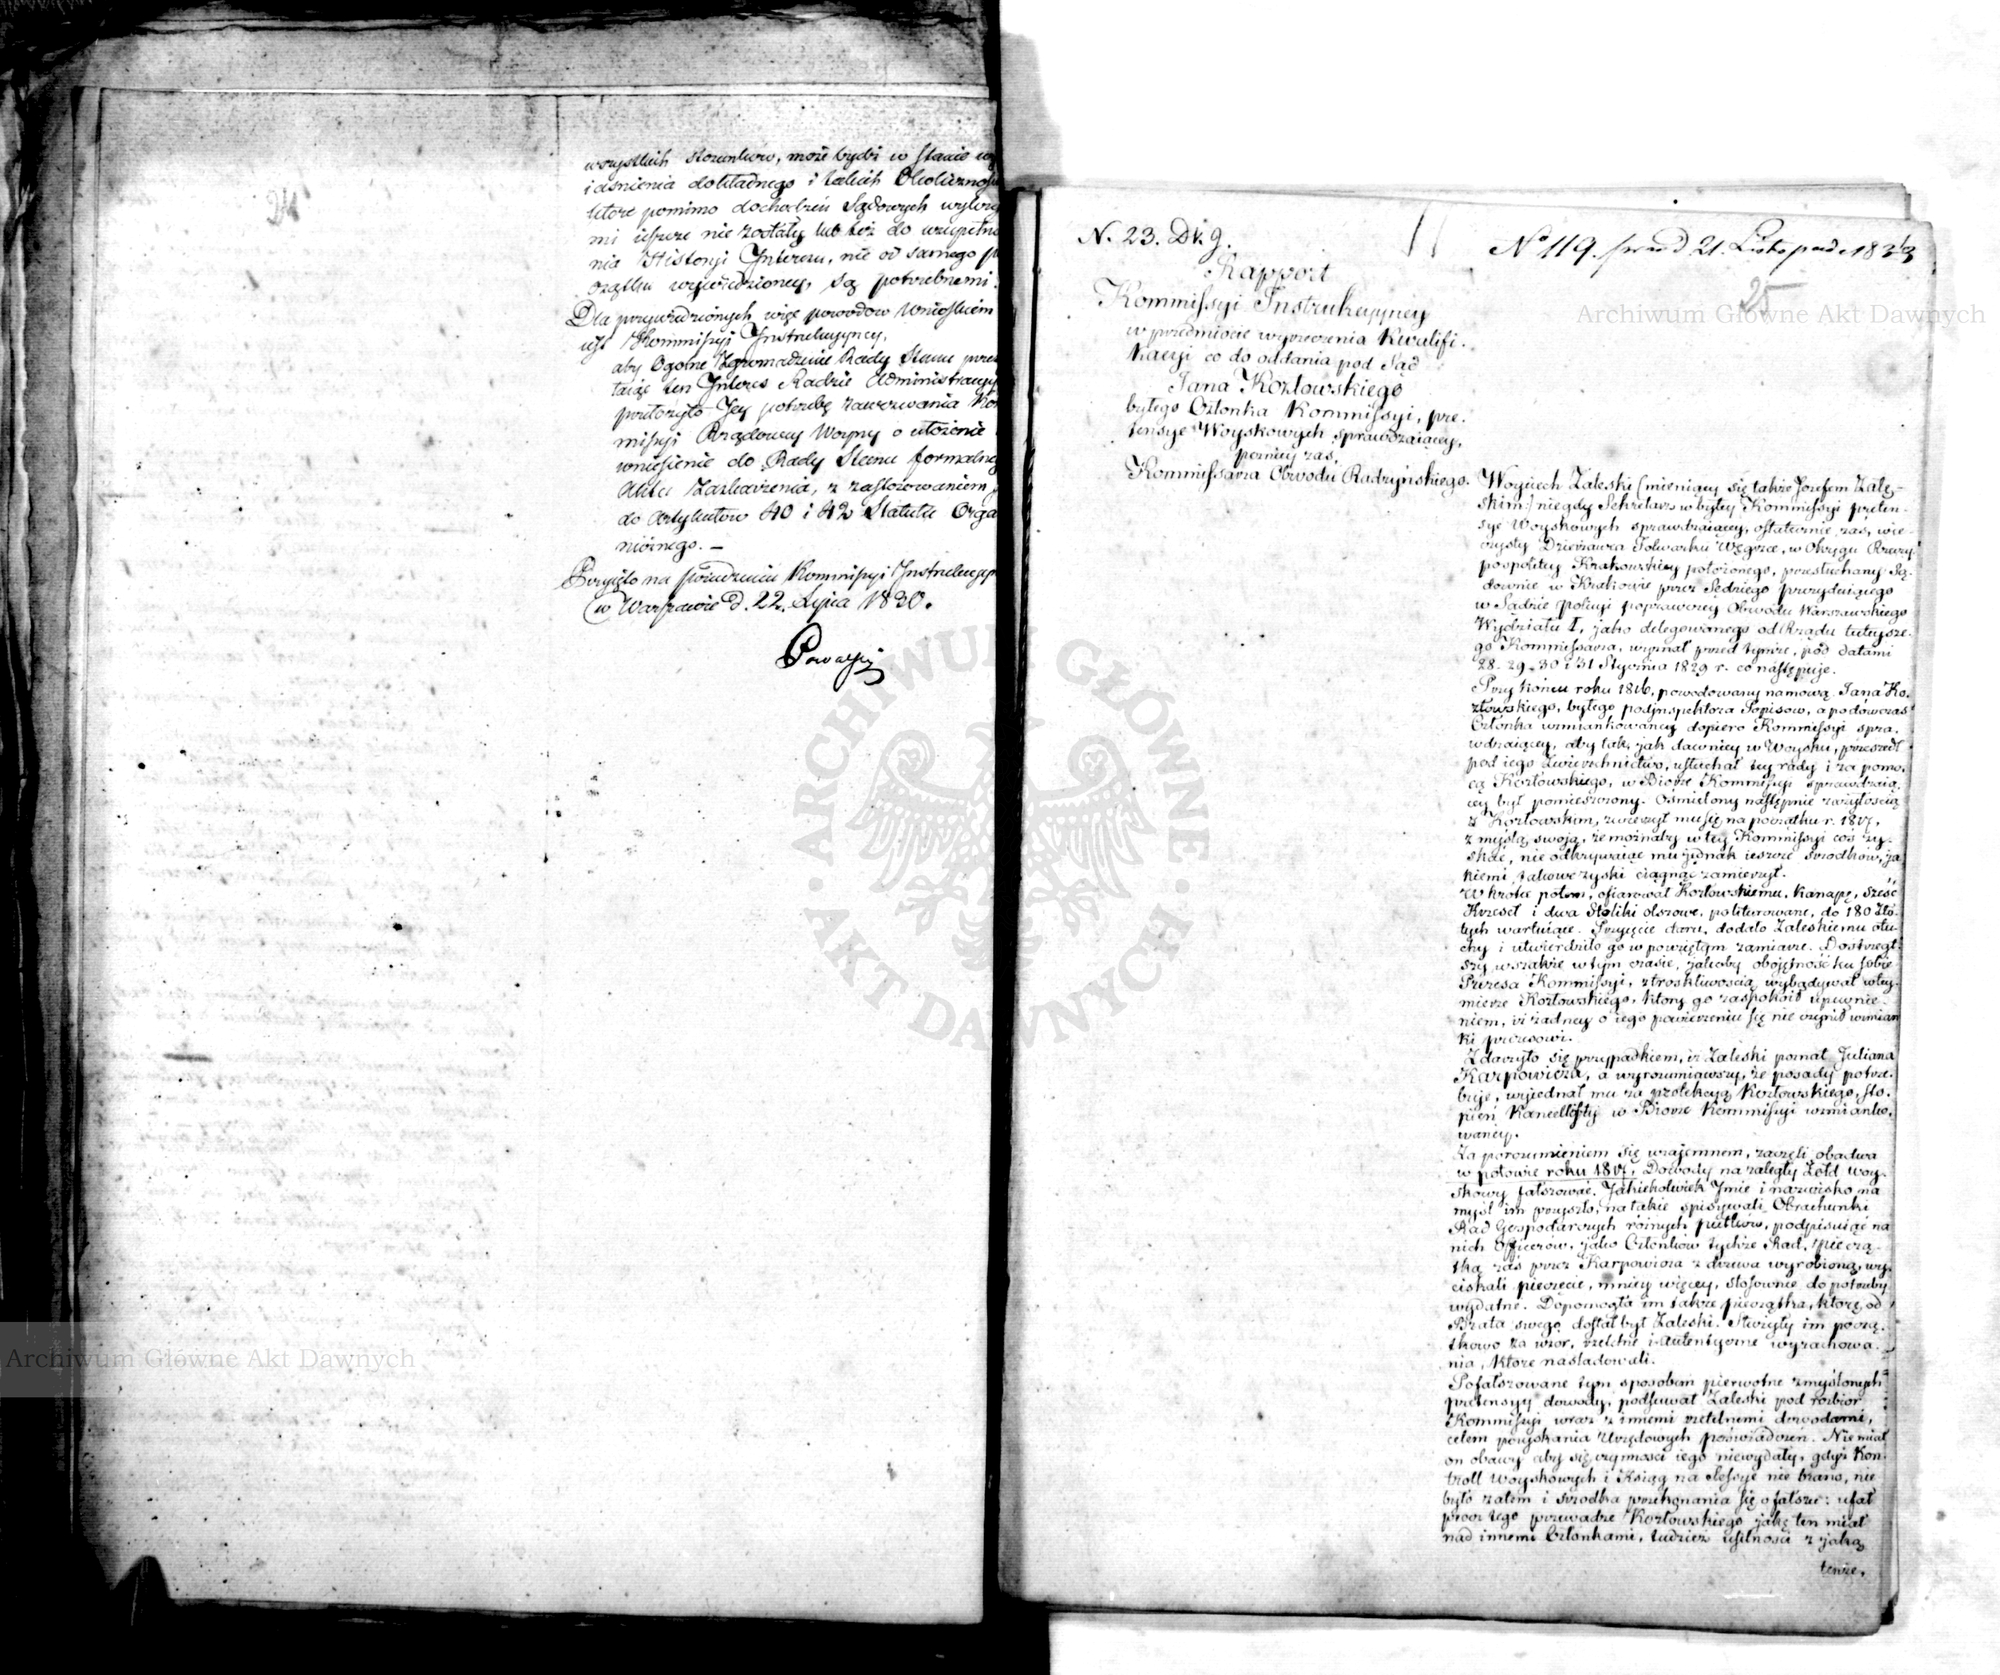 24
wszystkich stosunków, może bydź w stanie
iaśnienia dokładnego i takich Okolicznoś
które pomimo dochodzeń Sądowych
mi ieszcze nie zostały lub też do uzupełnie
nia Historyi Interesu, nie od samego
czątku wywiedzioney, są potrzebnemi.
Dla przywiedzionych więc powodow Wnioskiem
iest Kommissyi Instrukcyyney,
aby Ogolne Zgromadzenie Rady Stanu
ten Interes Radzie Administracyy
przełożyło Jey potrzebę zawezwania Kom
missyi Rządowey Woyny o ułożenie
wniesienie do Rady Stanu formalnego
Aktu Zaskarżenia, z zastosowaniem
do Artykułów 40 i 42 Statutu Orga
nicznego. —
Przyięto na posiedzeniu Kommissyi Instrukcyyn
w Warszawie d. 22. Lipca 1830.
N. 23. Dz. g.
No 119. 21. Listopada 1833
25
Rapport
Kommissyi Instrukcyyney
w przedmiocie wyrzeczenia Kwalifi-
kacyi co do oddania pod Sąd
Jana Kozłowskiego
byłego Członka Kommissyi, pre-
tensye Woyskowych sprawdzaiącey,
poźniey zaś,
Kommissarza Obwodu Radzyńskiego.
Woyciech Zaleski (mieniący się także Jozefem Zale-
skim) niegdy Sekretarz w byłey Kommissyi preten-
sye Woyskowych sprawdzaiącey, ostatecznie zaś, wie-
czysty Dzierżawca Folwarku Węgrzce, w Okręgu Rzeczy-
pospolitey Krakowskiey położonego, przesłuchany Są-
downie w Krakowie przez Sędziego prezyduiącego
w Sądzie Policyi poprawczey Obwodu Warszawskiego
Wydziału I, jako delegowanego od Rządu tuteysze-
go Kommissarza, wyznał przed tymże, pod datami
28. 29. 30 i 31 Stycznia 1829 r. co następuje.
Przy końcu roku 1816, powodowany namową Jana Ko-
złowskiego, byłego podjnspektora Popisow, a podówczas
Członka wzmiankowaney dopiero Kommissyi spra-
wdzaiącey, aby tak, jak dawniey w Woysku, przeszedł
pod iego zwierzchnictwo, usłuchał tey rady i za pomo-
cą Kozłowskiego, w Biorze Kommissyi sprawdzaią-
cey był pomieszczony. Ośmielony następnie zażyłością
z Kozłowskim, zwierzył mu się na początku r. 1817,
z myślą swoją, że możnaby w tey Kommissyi coś zy-
skać, nie odkrywaiąc mu jednak ieszcze srodków, ja-
kiemi takowe zyski ciągnąć zamierzył.
W krótce potem, ofiarował Kozłowskiemu, kanapę, sześć
Krzeseł i dwa Stoliki olszowe, politurowane, do 180 Zło-
tych wartuiące. Przyięcie daru, dodało Zaleskiemu otu-
chy i utwierdziło go w powziętym zamiarze. Dostrzegł-
szy wszakże w tym czasie, jakoby obojętność ku sobie
Prezesa Kommissyi, z troskliwością wybadywał w tey
mierze Kozłowskiego, który go zaspokoił upewnie-
niem, iż żadney o iego powierzeniu się nie uczynił wzmian-
ki prezesowi.
Zdarzyło się przypadkiem, iż Zaleski poznał Juliana
Karpowicza, a wyrozumiawszy, że posady potrze-
buje, wyjednał mu za protekcyą Kozłowskiego, sto-
pień Kancellisty w Biorze Kommissyi wzmianko-
waney.
Za porozumieniem się wzajemnem, zaczęli obadwa
w połowie roku 1817, Dowody na zaległy Żołd woy-
skowy fałszować. Jakiekolwiek Jmie i nazwisko na
myśl im przyszło, na takie spisywali Obrachunki
Rad Gospodarczych różnych pułków, podpisuiąc na
nich Officerów, jako Członków tychże Rad, pieczą-
tką zaś przez Karpowicza z drzewa wyrobioną, wy-
ciskali pieczęcie, mniey więcey, stosownie do potrzeby
wydatne. Dopomogła im także pieczątka, którę od
Brata swego dostał był Zaleski. Służyły im począ-
tkowo za wzór, rzetelne i autentyczne wyrachowa-
nia, które nasladowali.
Pofałszowane tym sposobem pierwotne zmyślonych
pretensyy dowody, podsuwał Zaleski pod rozbior
Kommissyi wraz z innemi rzetelnemi dowodami,
celem pozyskania Urzędowych poświadczeń. Nie miał
on obawy aby się czynności iego niewydały, gdyż Kon-
troll Woyskowych i Ksiąg na Sessye nie brano, nie
było zatem i srzodka przekonania się o fałszu: ufał
procz tego przewadze Kozłowskiego jaką ten miał
nad innemi Członkami, tudzież usilności z jaką
tenże,
ARCHIWUM GŁÓWNE AKT DAWNYCH
Archiwum Główne Akt Dawnych
Archiwum Główne Akt Dawnych